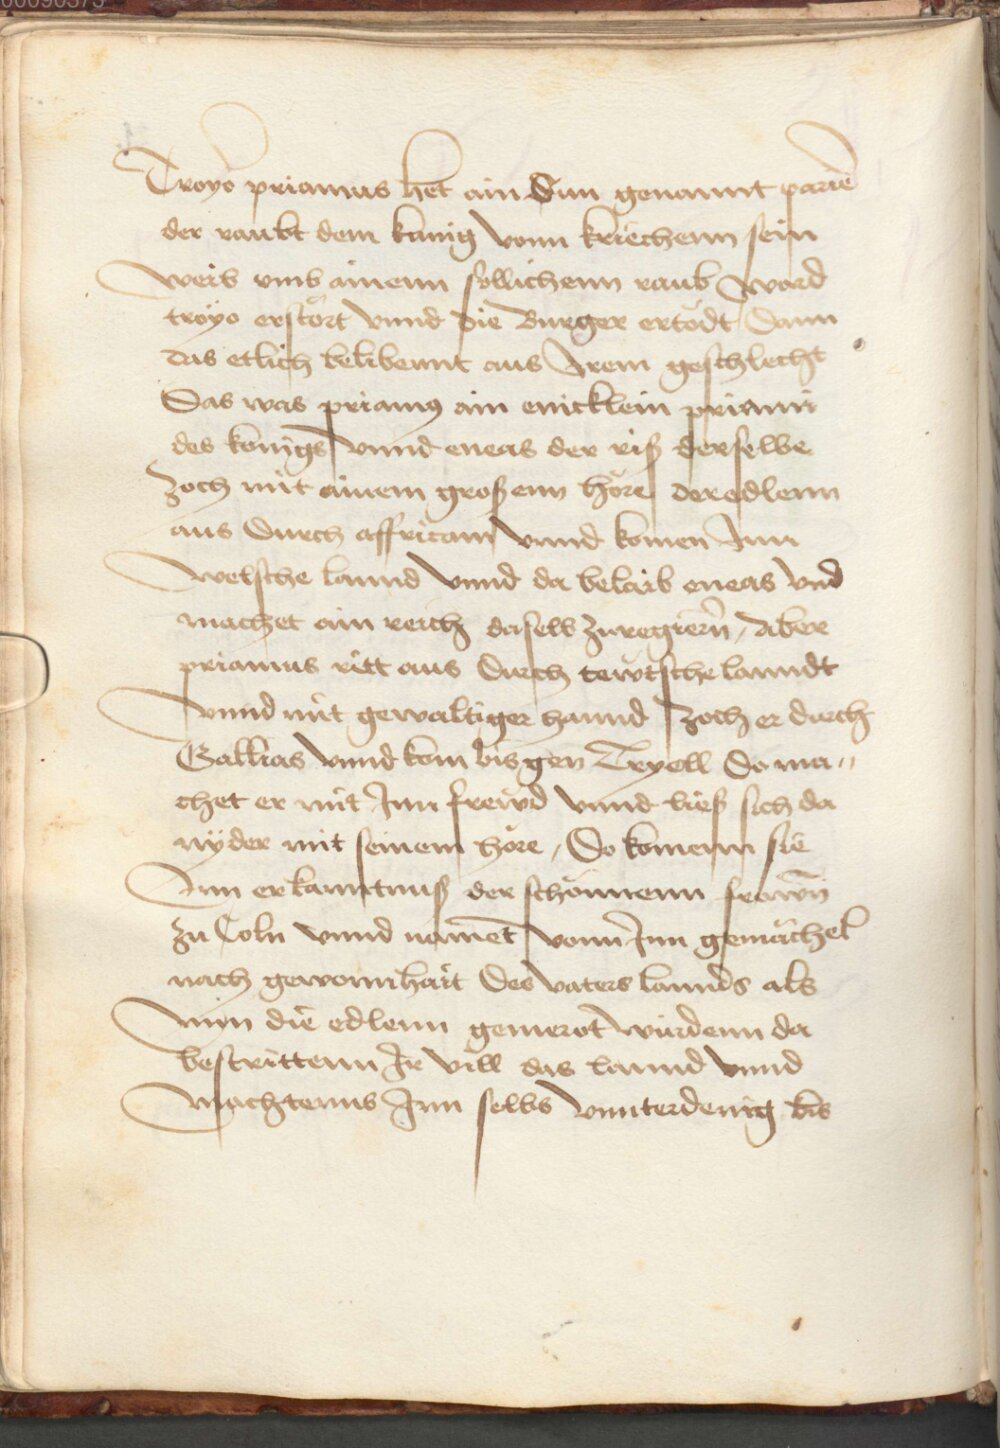 Troyo priamus het ain Sun genannt parie
der raubt dem kunig vonn kriechenn sein
weib umb ainenn sollichenn raub ward
troyo erstört vnnd die Burger ertödt Dann
das etlich belibennt aus Irem geschlecht
Das was priamus ain enicklein priami
des konigs vnnd eneas der riß derselbe
Zoch mit ainem großenn höre der edlenn
aus Durch affricam vnnd komen Inn
welsche lannd vnnd da belaib eneas vnd
machet ain reich daselb zuregiern, Aber
priamus ritt aus Durch tewtsche lanndt
vnnd mit gewaltiger hannd zoch er durch
Gallias vnnd kom bis gen Tryell Do ma„
chet er mit Inn frewd vnnd ließ sich da
nyder mit seinem höre, Do komenn sie
Inn erkanntnuß der schönnenn frawn
zu Coln vnnd namet vonn Inn gemächel
nach gewonnhait Des vaters lannds als
nun die edlenn gemerot würdenn da
bestrittenn Ir vill das lannd vnnd
machtenns Inn selbs vnnterdenig bis